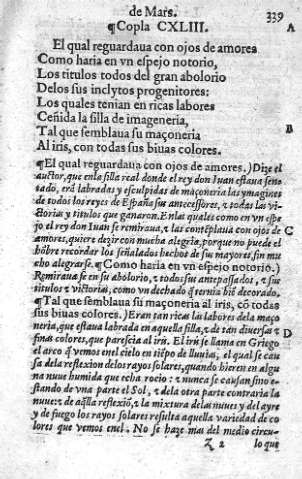 de Mars. 339
¶Copla CXLIII. A
El qual reguardaua con ojos de amores
Como haria en vn espejo notorio,
Los titulos todos del gran abolorio
Delos sus inclytos progenitores:
Los quales tenian en ricas labores
Ceñida la silla de imageneria,
Tal que semblaua su maçoneria B
Al iris, con todas sus biuas colores.
¶El qual reguardaua con ojos de amores.) Dize el
auctor, que enla silla real donde el rey don Iuan estaua sen
tado, erã labradas y esculpidas de maçoneria las ymagines
de todos los reyes de España sus antecessores, z todas las vi-
ctorias y titulos que ganaron. En las quales como en vn espe
jo el rey don Iuan se remiraua, z las contẽplaua con ojos de C
amores, quiere dezir con mucha alegria, porque no puede el
hõbre recordar los señalados hechos de sus mayores, sin mu
cho alegrarse. ¶Como haria en vñ espejo notorio.)
Remiraua se en su abolorio, z todos sus antepassados, z sus
titulos z victorias, como vn dechado q̃ ternia biẽ decorado.
¶Tal que semblaua su maçoneria al iris, cõ todas
sus biuas colores.) Eran tan ricas las labores dela maço
neria, que estaua labrada en aquella silla, z de tan diuersas z D
finas colores, que parescia al iris. El iris se llama en Griego
el arco q̃ vemos enel cielo en tiẽpo de lluuia, el qual se cau
sa dela reflexion delos rayos solares, quando hieren en algu
na nuue humida que echa rocio: z nunca se causa sino e-
stando de vna parte el Sol, z dela otra parte contraria la
nuue: z de aq̃lla reflexiõ, z la mixtura delas nuues y del ayre
y de fuego los rayos solares resulta aquella variedad de co
lores que vemos enel. No se haze mas del medio circu-
Z 2 lo que